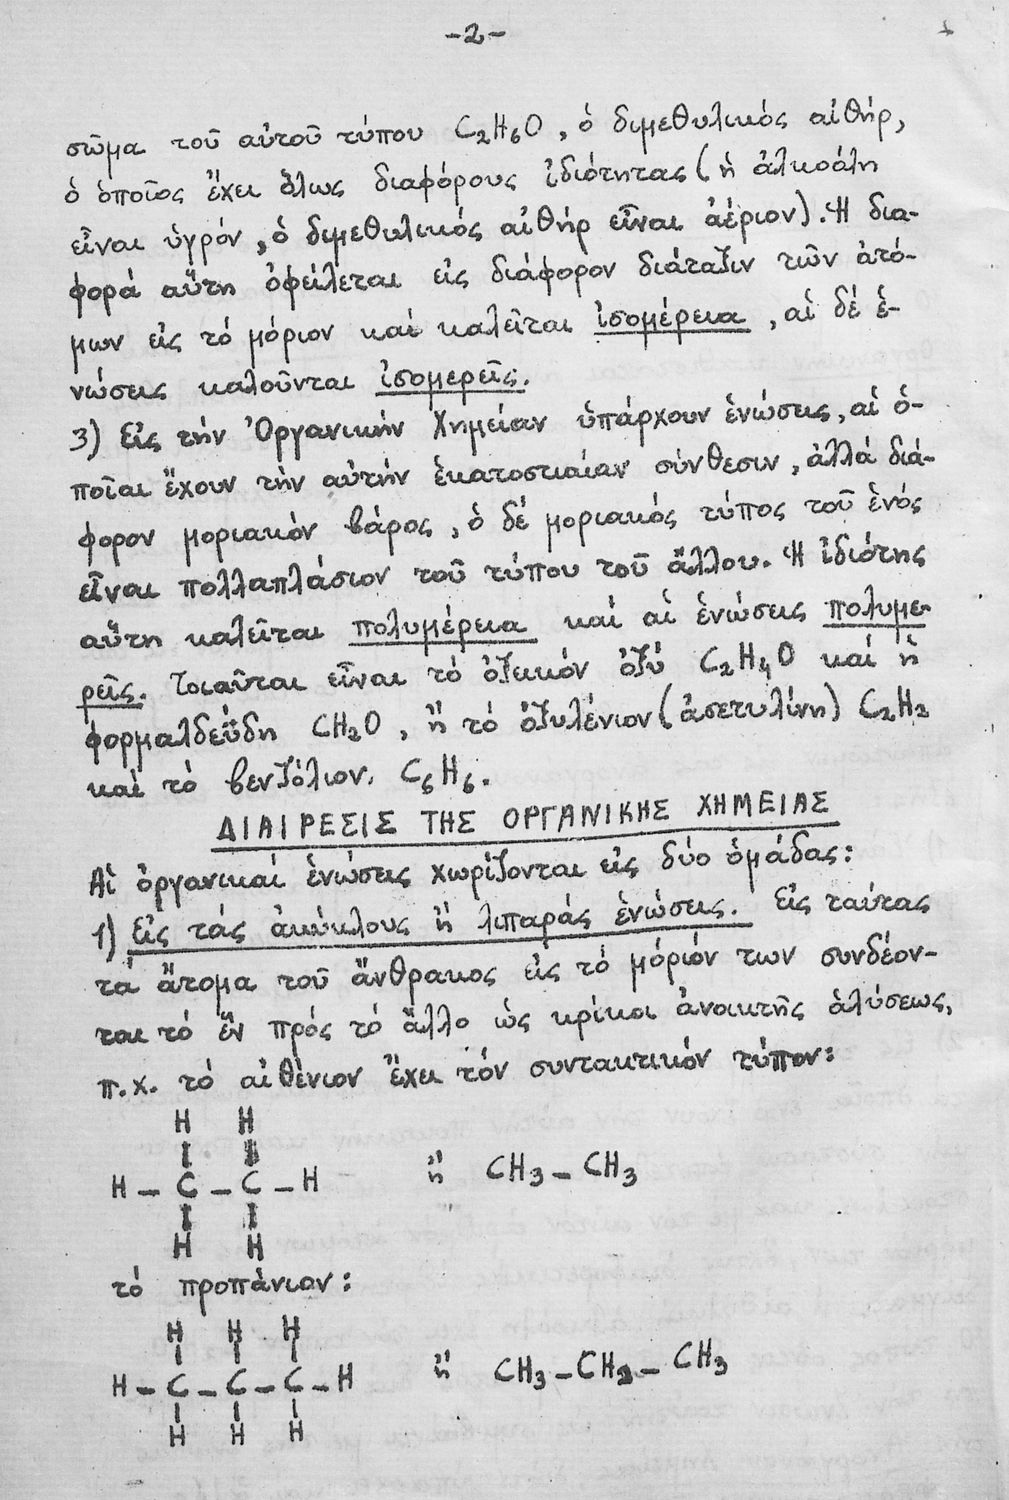 -2-
σῶμα τοῦ αὐτοῦ τύπου C₂H₆O, ὁ διμεθυλικός αἰθήρ,
ὁ ὁποῖος ἔχει ὅλως διαφόρους ἰδιότητας (ἡ ἀλκοόλη
εἶναι ὑγρόν, ὁ διμεθυλικός αἰθήρ εἶναι ἀέριον). Ἡ δια-
φορά αὕτη ὀφείλεται εἰς διάφορον διάταξιν τῶν ἀτό-
μων εἰς τό μόριον καί καλεῖται ἰσομέρεια, αἱ δέ ἑ-
νώσεις καλοῦνται ἰσομερεῖς.
3) Εἰς τήν Ὀργανικήν Χημείαν ὑπάρχουν ἑνώσεις, αἱ ὁ-
ποῖαι ἔχουν τήν αὐτήν ἑκατοστιαίαν σύνθεσιν, ἀλλά διά-
φορον μοριακόν βάρος, ὁ δέ μοριακός τύπος τοῦ ἑνός
εἶναι πολλαπλάσιον τοῦ τύπου τοῦ ἄλλου. Ἡ ἰδιότης
αὕτη καλεῖται πολυμέρεια καί αἱ ἑνώσεις πολυμε-
ρεῖς. Τοιαῦται εἶναι τό ὀξικόν ὀξύ C₂H₄O καί ἡ
φορμαλδεΰδη CH₂O, ἤ τό ὀξυλένιον (ἀσετυλίνη) C₂H₂
καί τό βενζόλιον. C₆H₆.
ΔΙΑΙΡΕΣΙΣ ΤΗΣ ΟΡΓΑΝΙΚΗΣ ΧΗΜΕΙΑΣ
Αἱ ὀργανικαί ἑνώσεις χωρίζονται εἰς δύο ὁμάδας:
1) Εἰς τάς ἀκύκλους ἤ λιπαράς ἑνώσεις. Εἰς ταύτας
τά ἄτομα τοῦ ἄνθρακος εἰς τό μόριόν των συνδέον-
ται τό ἕν πρός τό ἄλλο ὡς κρίκοι ἀνοικτῆς ἁλύσεως,
π.χ. τό αἰθένιον ἔχει τόν συντακτικόν τύπον:
H H
H - C - C - H ἤ CH₃ - CH₃
H H
τό προπάνιον:
H H H
H - C - C - C - H ἤ CH₃ - CH₂ - CH₃
H H H